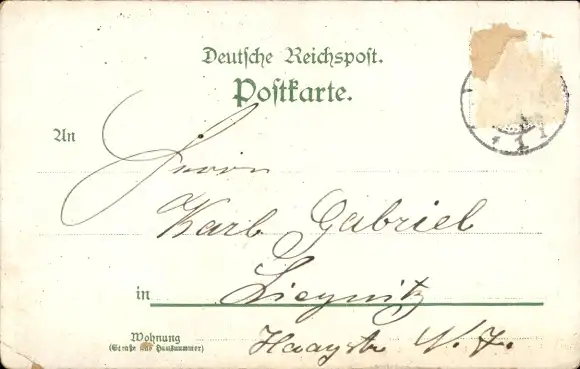 Deutsche Reichspost.
Postkarte.
An
Herrn
Karl Gabriel
in Liegnitz
Wohnung
(Straße und Hausnummer)
Haagstr N. 7.